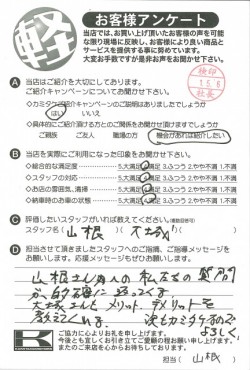 軽
お客様アンケート
当店では、お買い上げ頂いたお客様の声を可能
な限り現場に反映し、お客様により良い商品と
サービスを提供する事に努めています。
大変お手数ですが是非お声をお聞かせ下さい。
検印
社長
A 当店はご紹介を大切にしております。
ご紹介キャンペーンについてお聞かせ下さい。
◇カミタケご紹介キャンペーンについてご説明はありましたでしょうか
はい いいえ
◇具体的にご紹介頂ける方とのご関係をお聞かせ頂けますでしょうか
ご親族 ご友人 職場の方 機会があれば紹介したい
B 当店を実際にご利用になった印象をお聞かせ下さい。
◇総合的な満足度 5.大満足 4.満足 3.ふつう 2.やや不満 1.不満
◇スタッフの対応 5.大満足 4.満足 3.ふつう 2.やや不満 1.不満
◇お店の雰囲気、清掃 5.大満足 4.満足 3.ふつう 2.やや不満 1.不満
◇納車時のお車の状態 5.大満足 4.満足 3.ふつう 2.やや不満 1.不満
C 評価したいスタッフがいれば教えてください。(複数回答可)
スタッフ名 ( 山根 ) ( 大城 )
D 担当させて頂きましたスタッフへのご指摘、ご指導メッセージを
お願いします。応援メッセージもぜひお願いします。
山根さんは 私たちの質問
が、的確に
メリット、デメリットを
教えてくれる。 次もカミタケさんで
よろしく
ご協力に心よりお礼を申し上げます。
今後とも宜しくお引き立てご愛顧の程お願い申し上げます。
またのご来店を心からお待ちしております。
担当 ( 山根 )